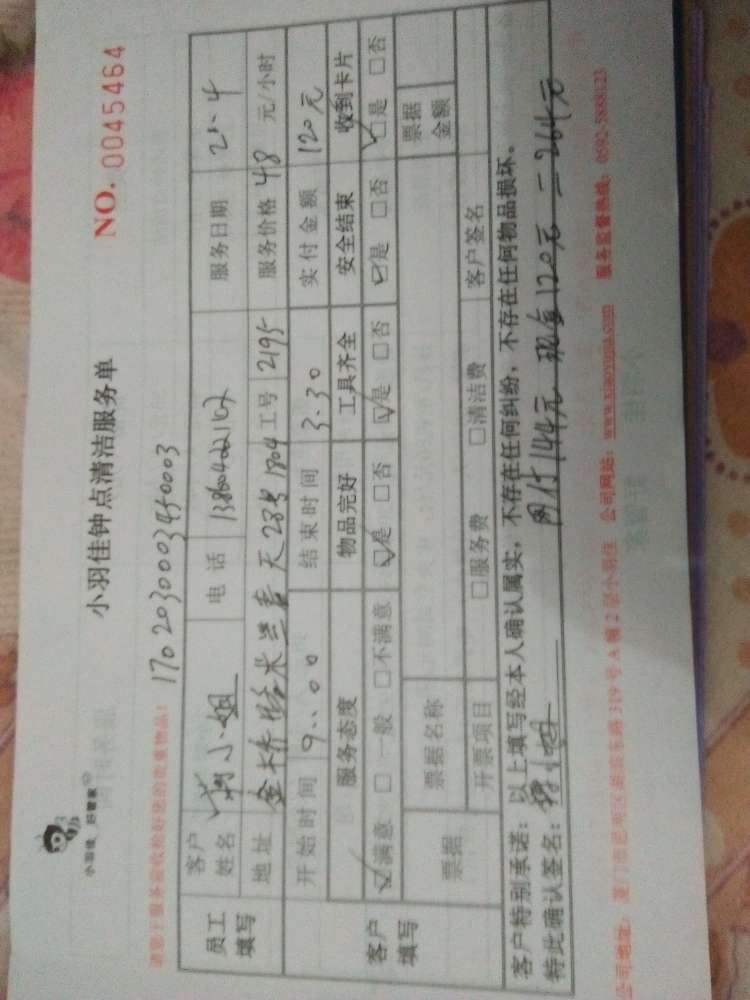 小羽佳 好管家
小羽佳钟点清洁服务单
NO. 0045464
请您于服务前收拾好您的贵重物品！
170203000345 0003
员工填写
客户姓名 小姐 电话 服务日期 2.4
地址 28号1804 工号 2195 服务价格 48 元/小时
开始时间 9:00 结束时间 3.30 实付金额 120元
客户填写
服务态度 物品完好 工具齐全 安全结束 收到卡片
☑满意 □一般 □不满意 ☑是 □否 ☑是 □否 ☑是 □否 ☑是 □否
票据 票据名称 票据金额
开票项目 □服务费 □清洁费 客户签名
客户特别承诺：以上填写经本人确认属实，不存在任何纠纷，不存在任何物品损坏。
特此确认签名： 网付144元 现金120元 = 264元
公司地址： 319号A幢2层小羽佳 公司网站：www.xiaoyujia.com 服务监督热线：0592-5888123